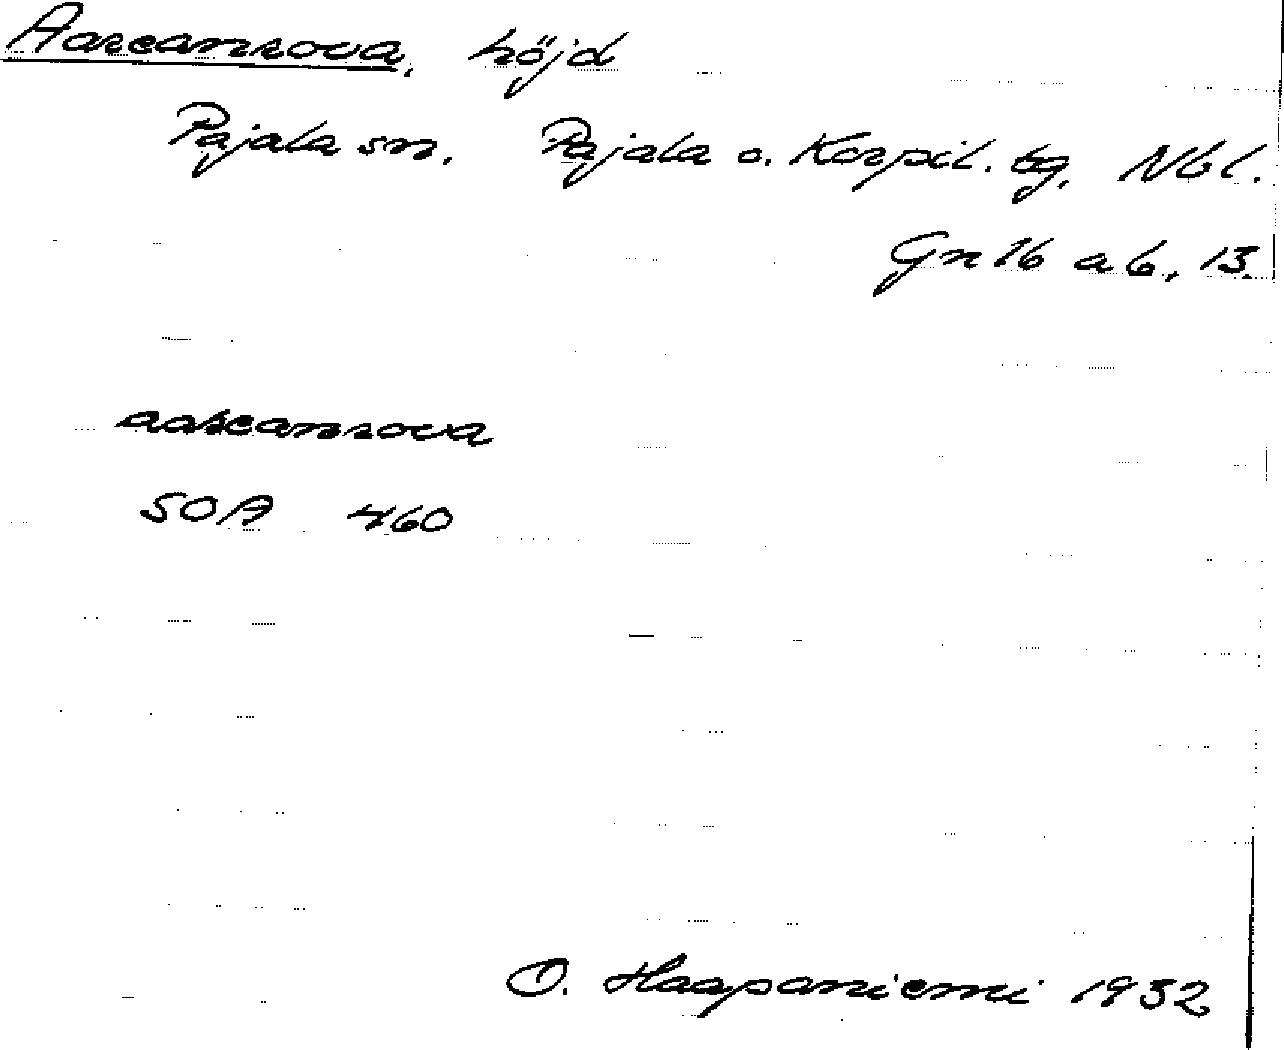 Aareanrova, höjd
Pajala sn. Pajala o. Korpil. tg, Nbl.
Gn 16 a b, 13.
aareanrova
SOA 460
O. Haapaniemi 1932